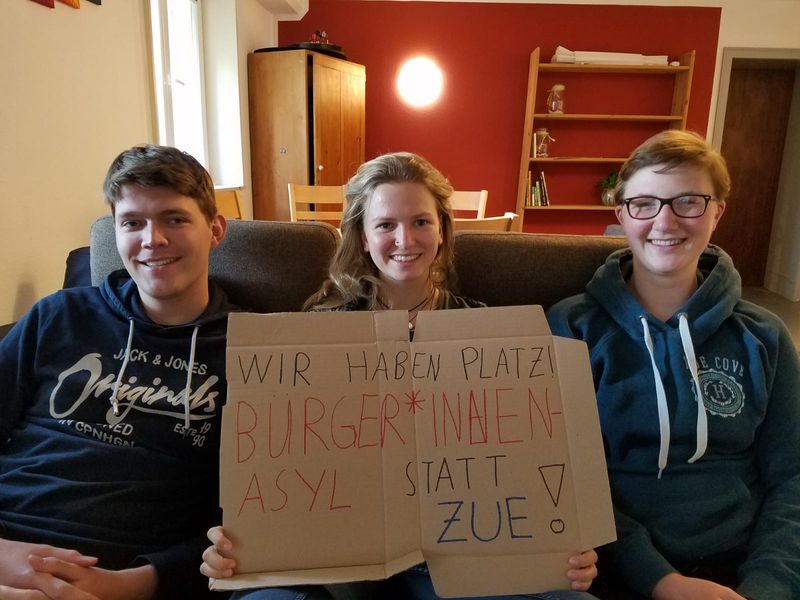 WIR HABEN PLATZ!
BÜRGER*INNEN-
ASYL STATT
ZUE!
JACK & JONES
Originals
CPNHGN
ESTD. 19
90
COVE
H